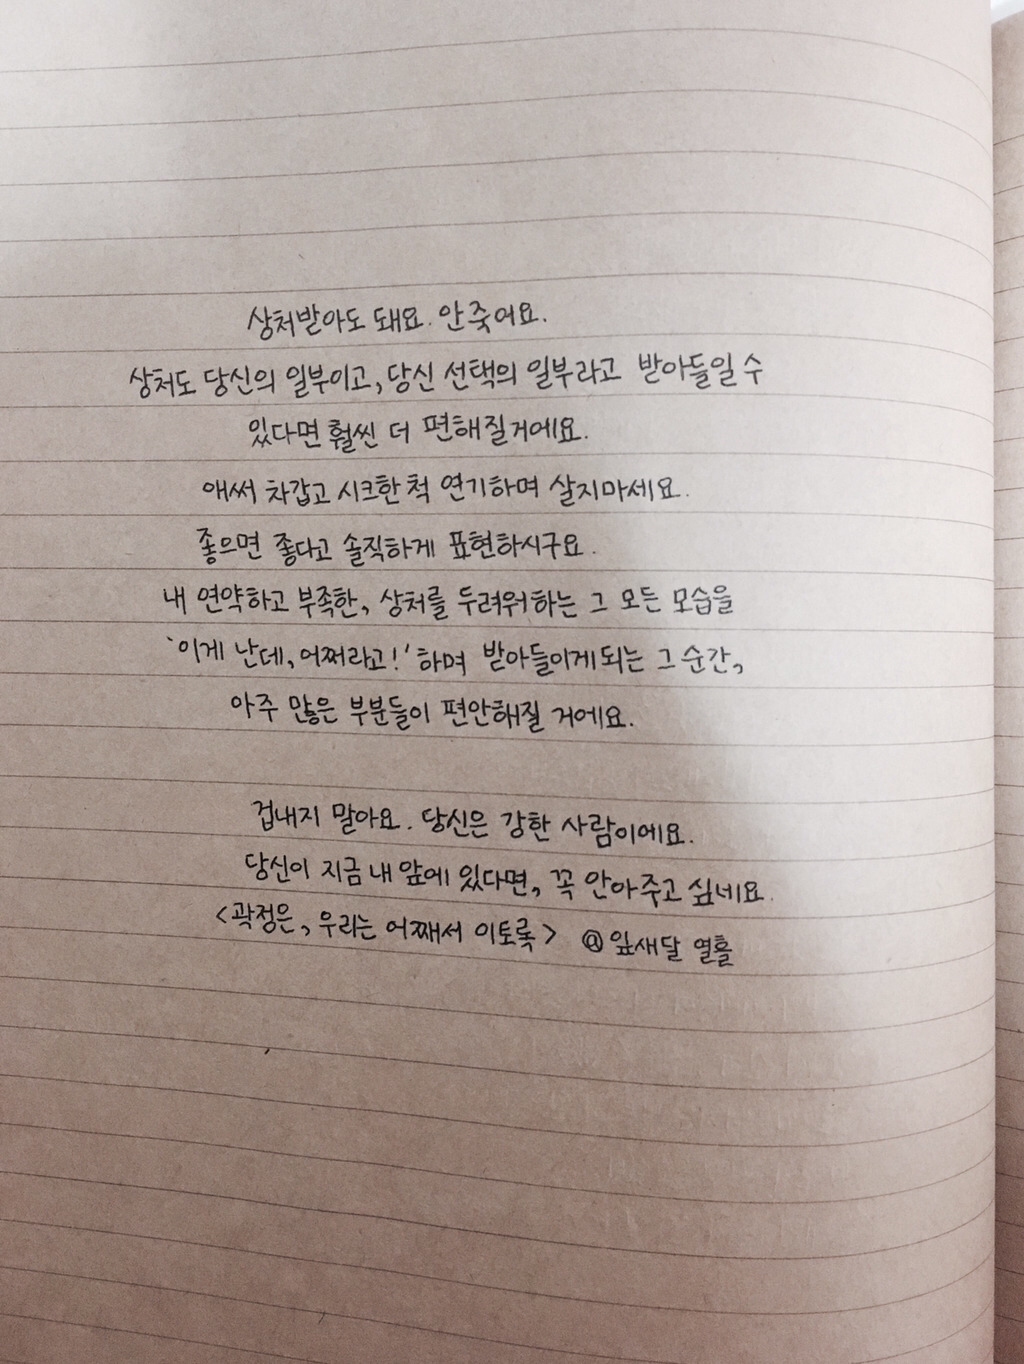 상처받아도 돼요. 안 죽어요.
상처도 당신의 일부이고, 당신 선택의 일부라고 받아들일 수
있다면 훨씬 더 편해질거에요.
애써 차갑고 시크한 척 연기하며 살지마세요.
좋으면 좋다고 솔직하게 표현하시구요.
내 연약하고 부족한, 상처를 두려워하는 그 모든 모습을
'이게 난데, 어쩌라고!' 하며 받아들이게되는 그 순간,
아주 많은 부분들이 편안해질 거에요.
겁내지 말아요. 당신은 강한 사람이에요.
당신이 지금 내 앞에 있다면, 꼭 안아주고 싶네요.
<곽정은, 우리는 어째서 이토록> @잎새달 열흘